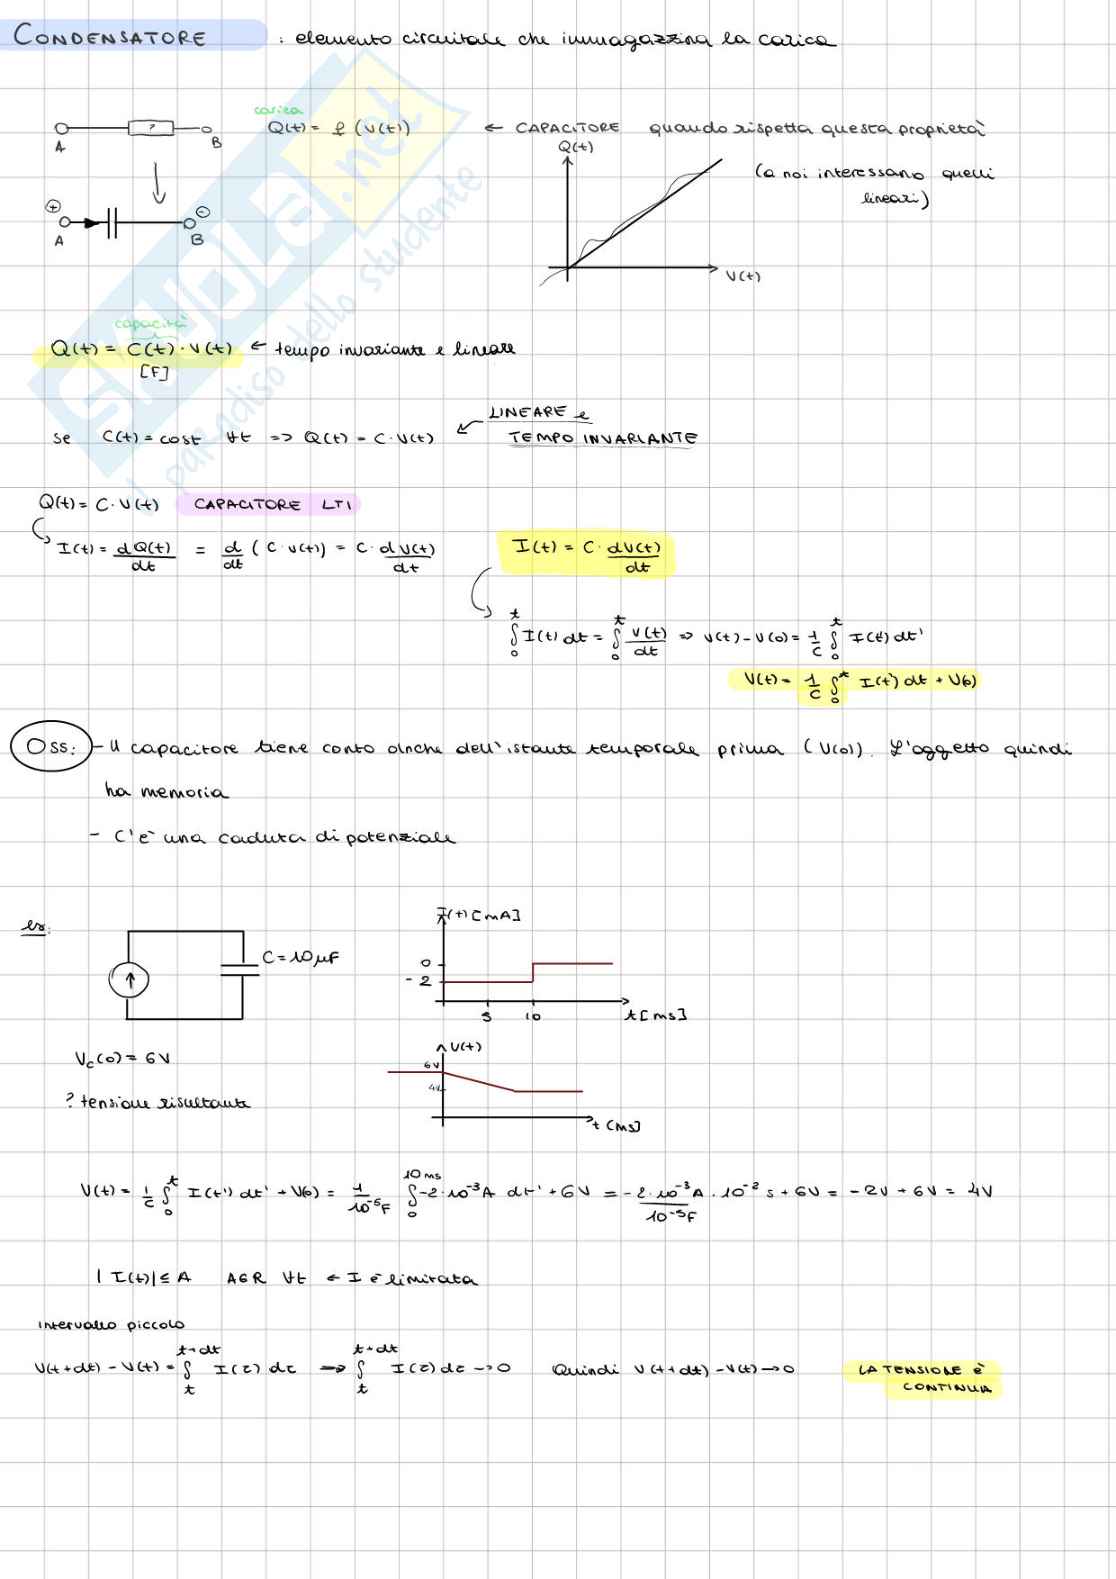 CONDENSATORE : elemento circuitale che immagazzina la carica
carica
? Q(t) = f (V(t)) ← CAPACITORE quando rispetta questa proprietà
A B
Q(t)
(a noi interessano quelli
lineari)
+ −
A B
V(t)
capacità
Q(t) = C(t) · V(t) ← tempo invariante e lineare
[F]
LINEARE e
se C(t) = cost ∀t => Q(t) = C · V(t) ← TEMPO INVARIANTE
Q(t) = C · V(t) CAPACITORE LTI
I(t) = dQ(t)/dt = d/dt (C · V(t)) = C · dV(t)/dt I(t) = C · dV(t)/dt
∫₀ᵗ I(t) dt = ∫₀ᵗ V(t)/dt => V(t) - V(0) = 1/C ∫₀ᵗ I(t') dt'
V(t) = 1/C ∫₀ᵗ I(t') dt + V(0)
Oss: - Il capacitore tiene conto anche dell'istante temporale prima (V(0)). L'oggetto quindi
ha memoria
- C'è una caduta di potenziale
es:
I(t) [mA]
C = 10 μF
0
-2
5 10 t [ms]
V(t)
Vc(0) = 6V
6V
4V
? tensione risultante
t [ms]
V(t) = 1/C ∫₀ᵗ I(t') dt' + V(0) = 1/10⁻⁵F ∫₀¹⁰ᵐˢ -2·10⁻³A dt' + 6V = -2·10⁻³A · 10⁻² s/10⁻⁵F + 6V = -2V + 6V = 4V
|I(t)| ≤ A A∈R ∀t ← I è limitata
intervallo piccolo
V(t+dt) - V(t) = ∫ₜᵗ⁺ᵈᵗ I(τ) dτ => ∫ₜᵗ⁺ᵈᵗ I(τ) dτ → 0 Quindi V(t+dt) - V(t) → 0 LA TENSIONE È
CONTINUA
SKUOLA.net
il paradiso dello studente